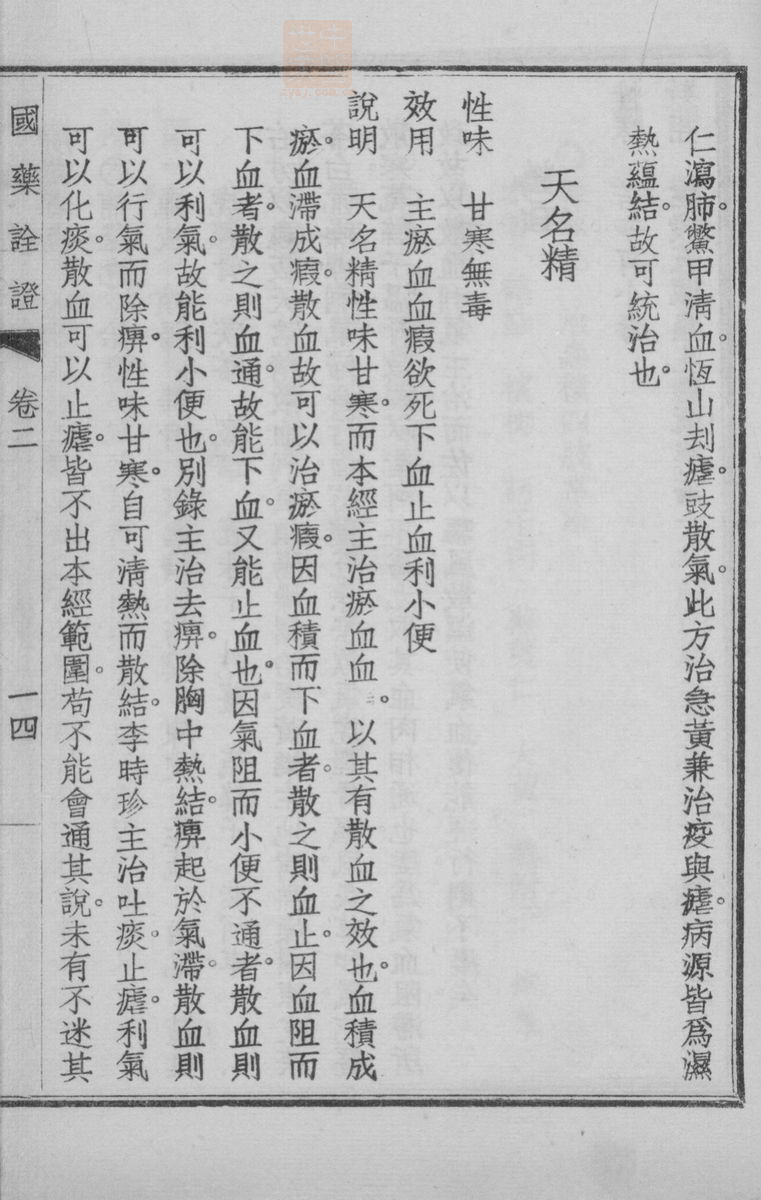 仁瀉肺。鱉甲清血。恆山刦瘧。豉散氣。此方治急黃兼治疫與瘧。病源皆爲濕
熱蘊結。故可統治也。
天名精
性味　甘寒無毒
效用　主瘀血血瘕欲死下血止血利小便
說明　天名精性味甘寒。而本經主治瘀血血。以其有散血之效也。血積成
瘀。血滯成瘕。散血故可以治瘀瘕。因血積而下血者。散之則血止。因血阻而
下血者。散之則血通。故能下血。又能止血也。因氣阻而小便不通者。散血則
可以利氣。故能利小便也。別錄主治去痹。除胸中熱結。痹起於氣滯。散血則
可以行氣而除痹。性味甘寒。自可清熱而散結。李時珍主治吐痰。止瘧。利氣
可以化痰。散血可以止瘧。皆不出本經範圍。茍不能會通其說。未有不迷其
國藥詮證　卷二　一四